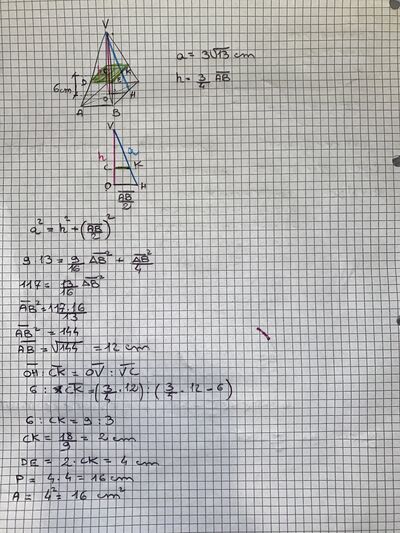 V
a = 3√13 cm
h = 3/4 AB
D
K
6cm
H
A
B
V
h
a
C
K
O
H
AB/2
a² = h² + (AB/2)²
9·13 = 9/16 AB² + AB²/4
117 = 13/16 AB²
AB² = 117·16/13
AB² = 144
AB = √144 = 12 cm
OH : CK = OV : VC
6 : CK = (3/4 · 12) : (3/4 · 12 - 6)
6 : CK = 9 : 3
CK = 18/9 = 2 cm
DE = 2 · CK = 4 cm
P = 4 · 4 = 16 cm
A = 4² = 16 cm²